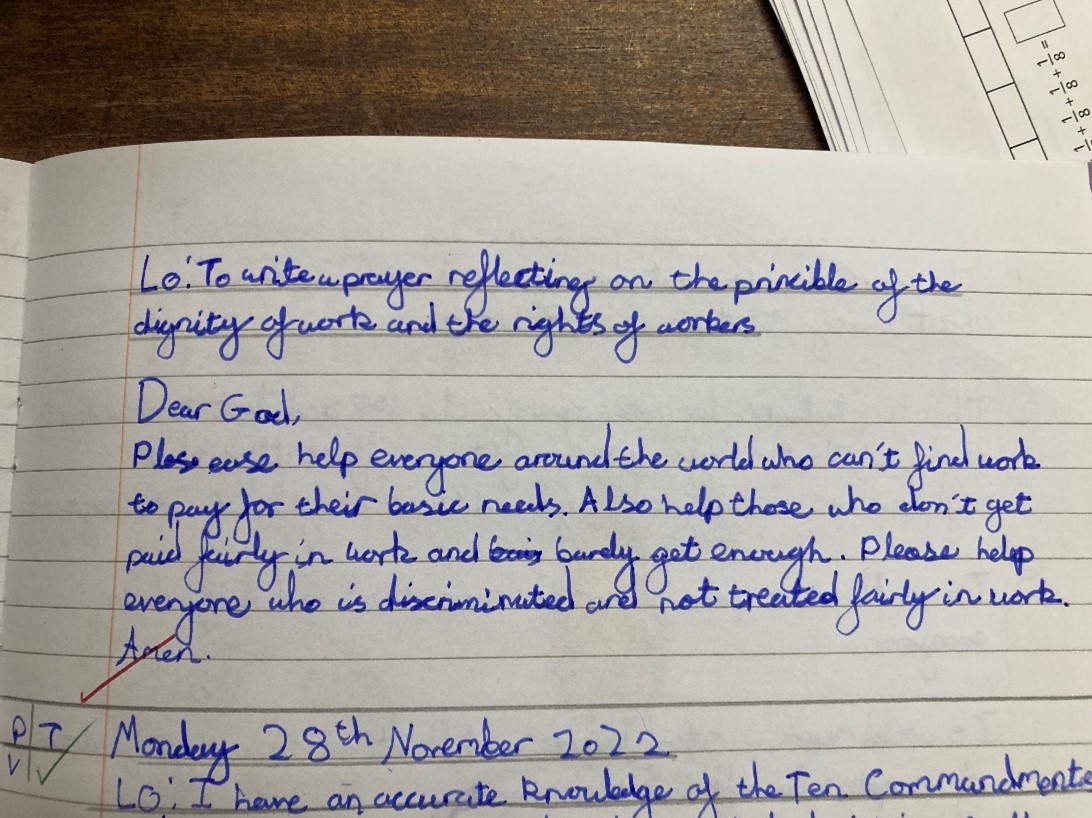 Lo: To write a prayer reflecting on the princible of the
dignity of work and the rights of workers
Dear God,
Pleas ease help everyone around the world who can't find work
to pay for their basic needs. Also help those who don't get
paid fairly in work and barely get enough. Please help
everyone who is discriminated and not treated fairly in work.
Amen.
P T
V
Monday 28th November 2022
LO: I have an accurate knowledge of the Ten Commandments
1/8 + 1/8 + 1/8 =